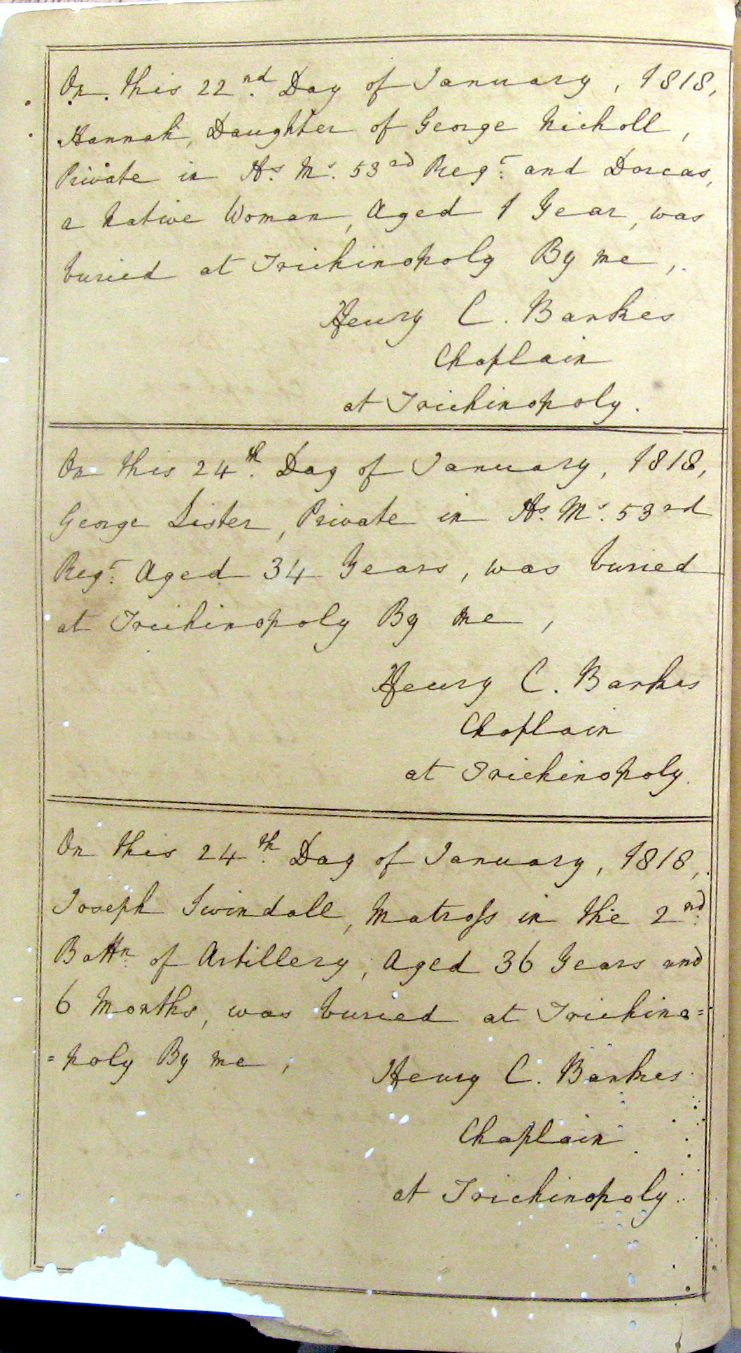 On this 22nd Day of January, 1818,
Hannah, Daughter of George Nicholl,
Private in Hs. Ms. 53rd Regt. and Dorcas,
a Native Woman, Aged 1 Year, was
buried at Trichinopoly By me,
Henry C. Bankes
Chaplain
at Trichinopoly.
On this 24th. Day of January, 1818,
George Lister, Private in Hs. Ms. 53rd
Regt. Aged 34 Years, was buried
at Trichinopoly By me,
Henry C. Bankes
Chaplain
at Trichinopoly.
On this 24th. Day of January, 1818,
Joseph Swindall, Matross in the 2nd
Battn. of Artillery, Aged 36 Years and
6 Months, was buried at Trichino=
=poly By me,
Henry C. Bankes
Chaplain
at Trichinopoly.